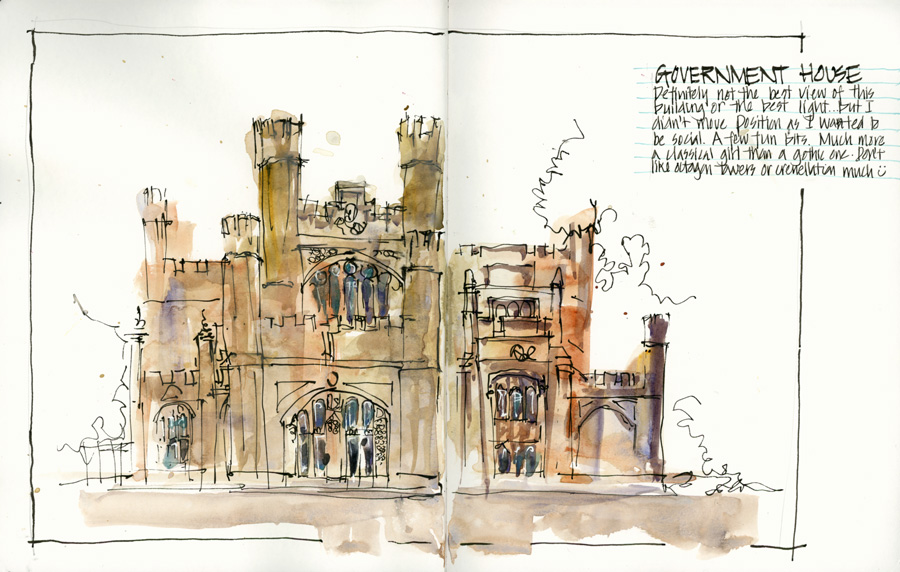 GOVERNMENT HOUSE
Definitely not the best view of this
building or the best light...but I
didn't move position as I wanted to
be social. A few fun bits. Much more
a classical girl than a gothic one. Don't
like octagon towers or crenelation much :)